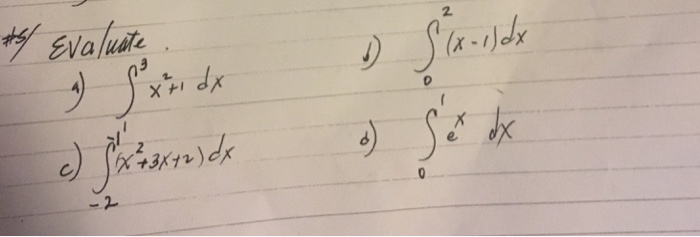 #5/ Evaluate.
a) ∫³ x²+1 dx
b) ∫₀² (x-1)dx
c) ∫₋₂⁻¹ (x²+3x+2)dx
d) ∫₀¹ eˣ dx